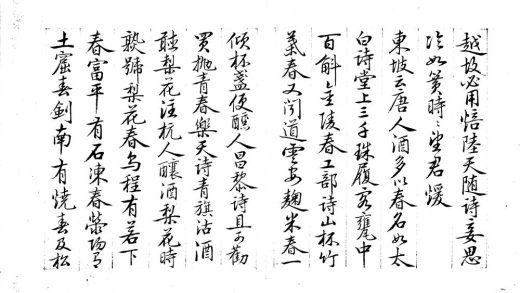 越故必用焙陸天隨詩妾思
冷如簧時〻望君煖
東坡云唐人酒多以春名如太
白詩堂上三千珠履客甕中
百斛金陵春工部詩山杯竹
葉春又聞道雲安麴米春一
傾杯盞便醺人昌黎詩且可勤
買抛青春樂天詩青旗沽酒
趁梨花注杭人釀酒梨花時
熟號梨花春烏程有若下
春富平有石凍春滎陽有
土窟春劍南有燒春及松